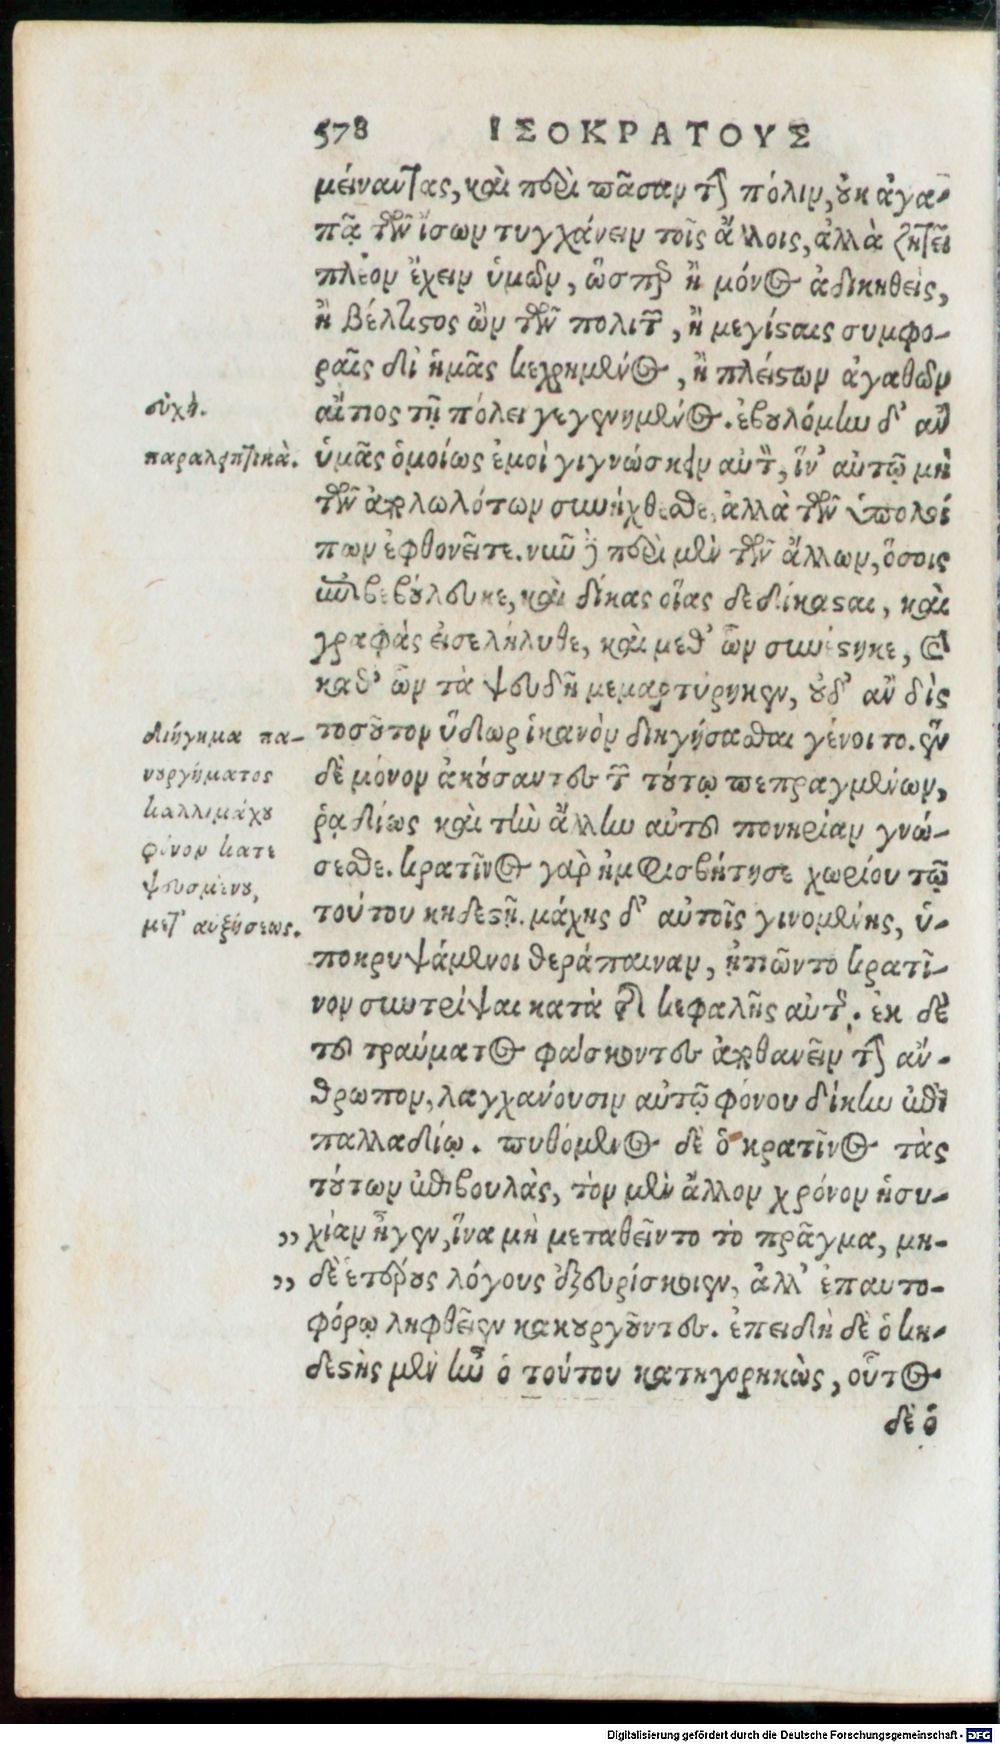 578 ΙΣΟΚΡΑΤΟΥΣ
μείναντας, καὶ περὶ πᾶσαν τὴν πόλιν, οὐκ ἀγα-
πᾷ τῶν ἴσων τυγχάνειν τοῖς ἄλλοις, ἀλλὰ ζητεῖ
πλέον ἔχειν ὑμῶν, ὥσπερ ἢ μόνος ἀδικηθεὶς,
ἢ βέλτιστος ὢν τῶν πολιτῶν, ἢ μεγίσταις συμφο-
ραῖς δι' ἡμᾶς κεχρημένος, ἢ πλείστων ἀγαθῶν
αἴτιος τῇ πόλει γεγενημένος. ἐβουλόμην δ' ἂν
ὑμᾶς ὁμοίως ἐμοὶ γιγνώσκειν αὐτὸν, ἵν' αὐτῷ μὴ
τῶν ἀπολωλότων συνήχθεσθε, ἀλλὰ τῶν ὑπολοί
πων ἐφθονεῖτε. νῦν δὲ περὶ μὲν τῶν ἄλλων, ὅσοις
ἐπιβεβούλευκε, καὶ δίκας οἵας δεδίκασται, καὶ
γραφὰς εἰσελήλυθε, καὶ μεθ' ὧν συνέστηκε, καὶ
καθ' ὧν τὰ ψευδῆ μεμαρτύρηκεν, οὐδ' ἂν δὶς
τοσοῦτον ὕδωρ ἱκανὸν διηγήσασθαι γένοιτο. ἓν
δὲ μόνον ἀκούσαντες τῶν τούτῳ πεπραγμένων,
ῥᾳδίως καὶ τὴν ἄλλην αὐτοῦ πονηρίαν γνώ-
σεσθε. κρατῖνος γὰρ ἠμφισβήτησε χωρίου τῷ
τούτου κηδεστῇ. μάχης δ' αὐτοῖς γινομένης, ὑ-
ποκρυψάμενοι θεράπαιναν, ᾐτιῶντο κρατῖ-
νον συντρίψαι κατὰ τῆς κεφαλῆς αὐτῆς. ἐκ δὲ
τοῦ τραύματος φάσκοντες ἀποθανεῖν τὴν ἄν-
θρωπον, λαγχάνουσιν αὐτῷ φόνου δίκην ἐπὶ
παλλαδίῳ. πυθόμενος δὲ ὁ κρατῖνος τὰς
τούτων ἐπιβουλὰς, τὸν μὲν ἄλλον χρόνον ἡσυ-
,, χίαν ἦγεν, ἵνα μὴ μεταθεῖντο τὸ πρᾶγμα, μη-
,, δὲ ἑτέρους λόγους ἐξευρίσκοιεν, ἀλλ' ἐπαυτο-
φόρῳ ληφθεῖεν κακουργοῦντες. ἐπειδὴ δὲ ὁ κη-
δεστὴς μὲν ἦν ὁ τούτου κατηγορηκὼς, οὗτος
δὲ ὁ
εὐχή.
παραλειπτικὰ.
διήγημα πα-
νουργήματος
καλλιμάχου
φόνον κατε
ψευσμένου,
μετ' αὐξήσεως.
Digitalisierung gefördert durch die Deutsche Forschungsgemeinschaft - DFG